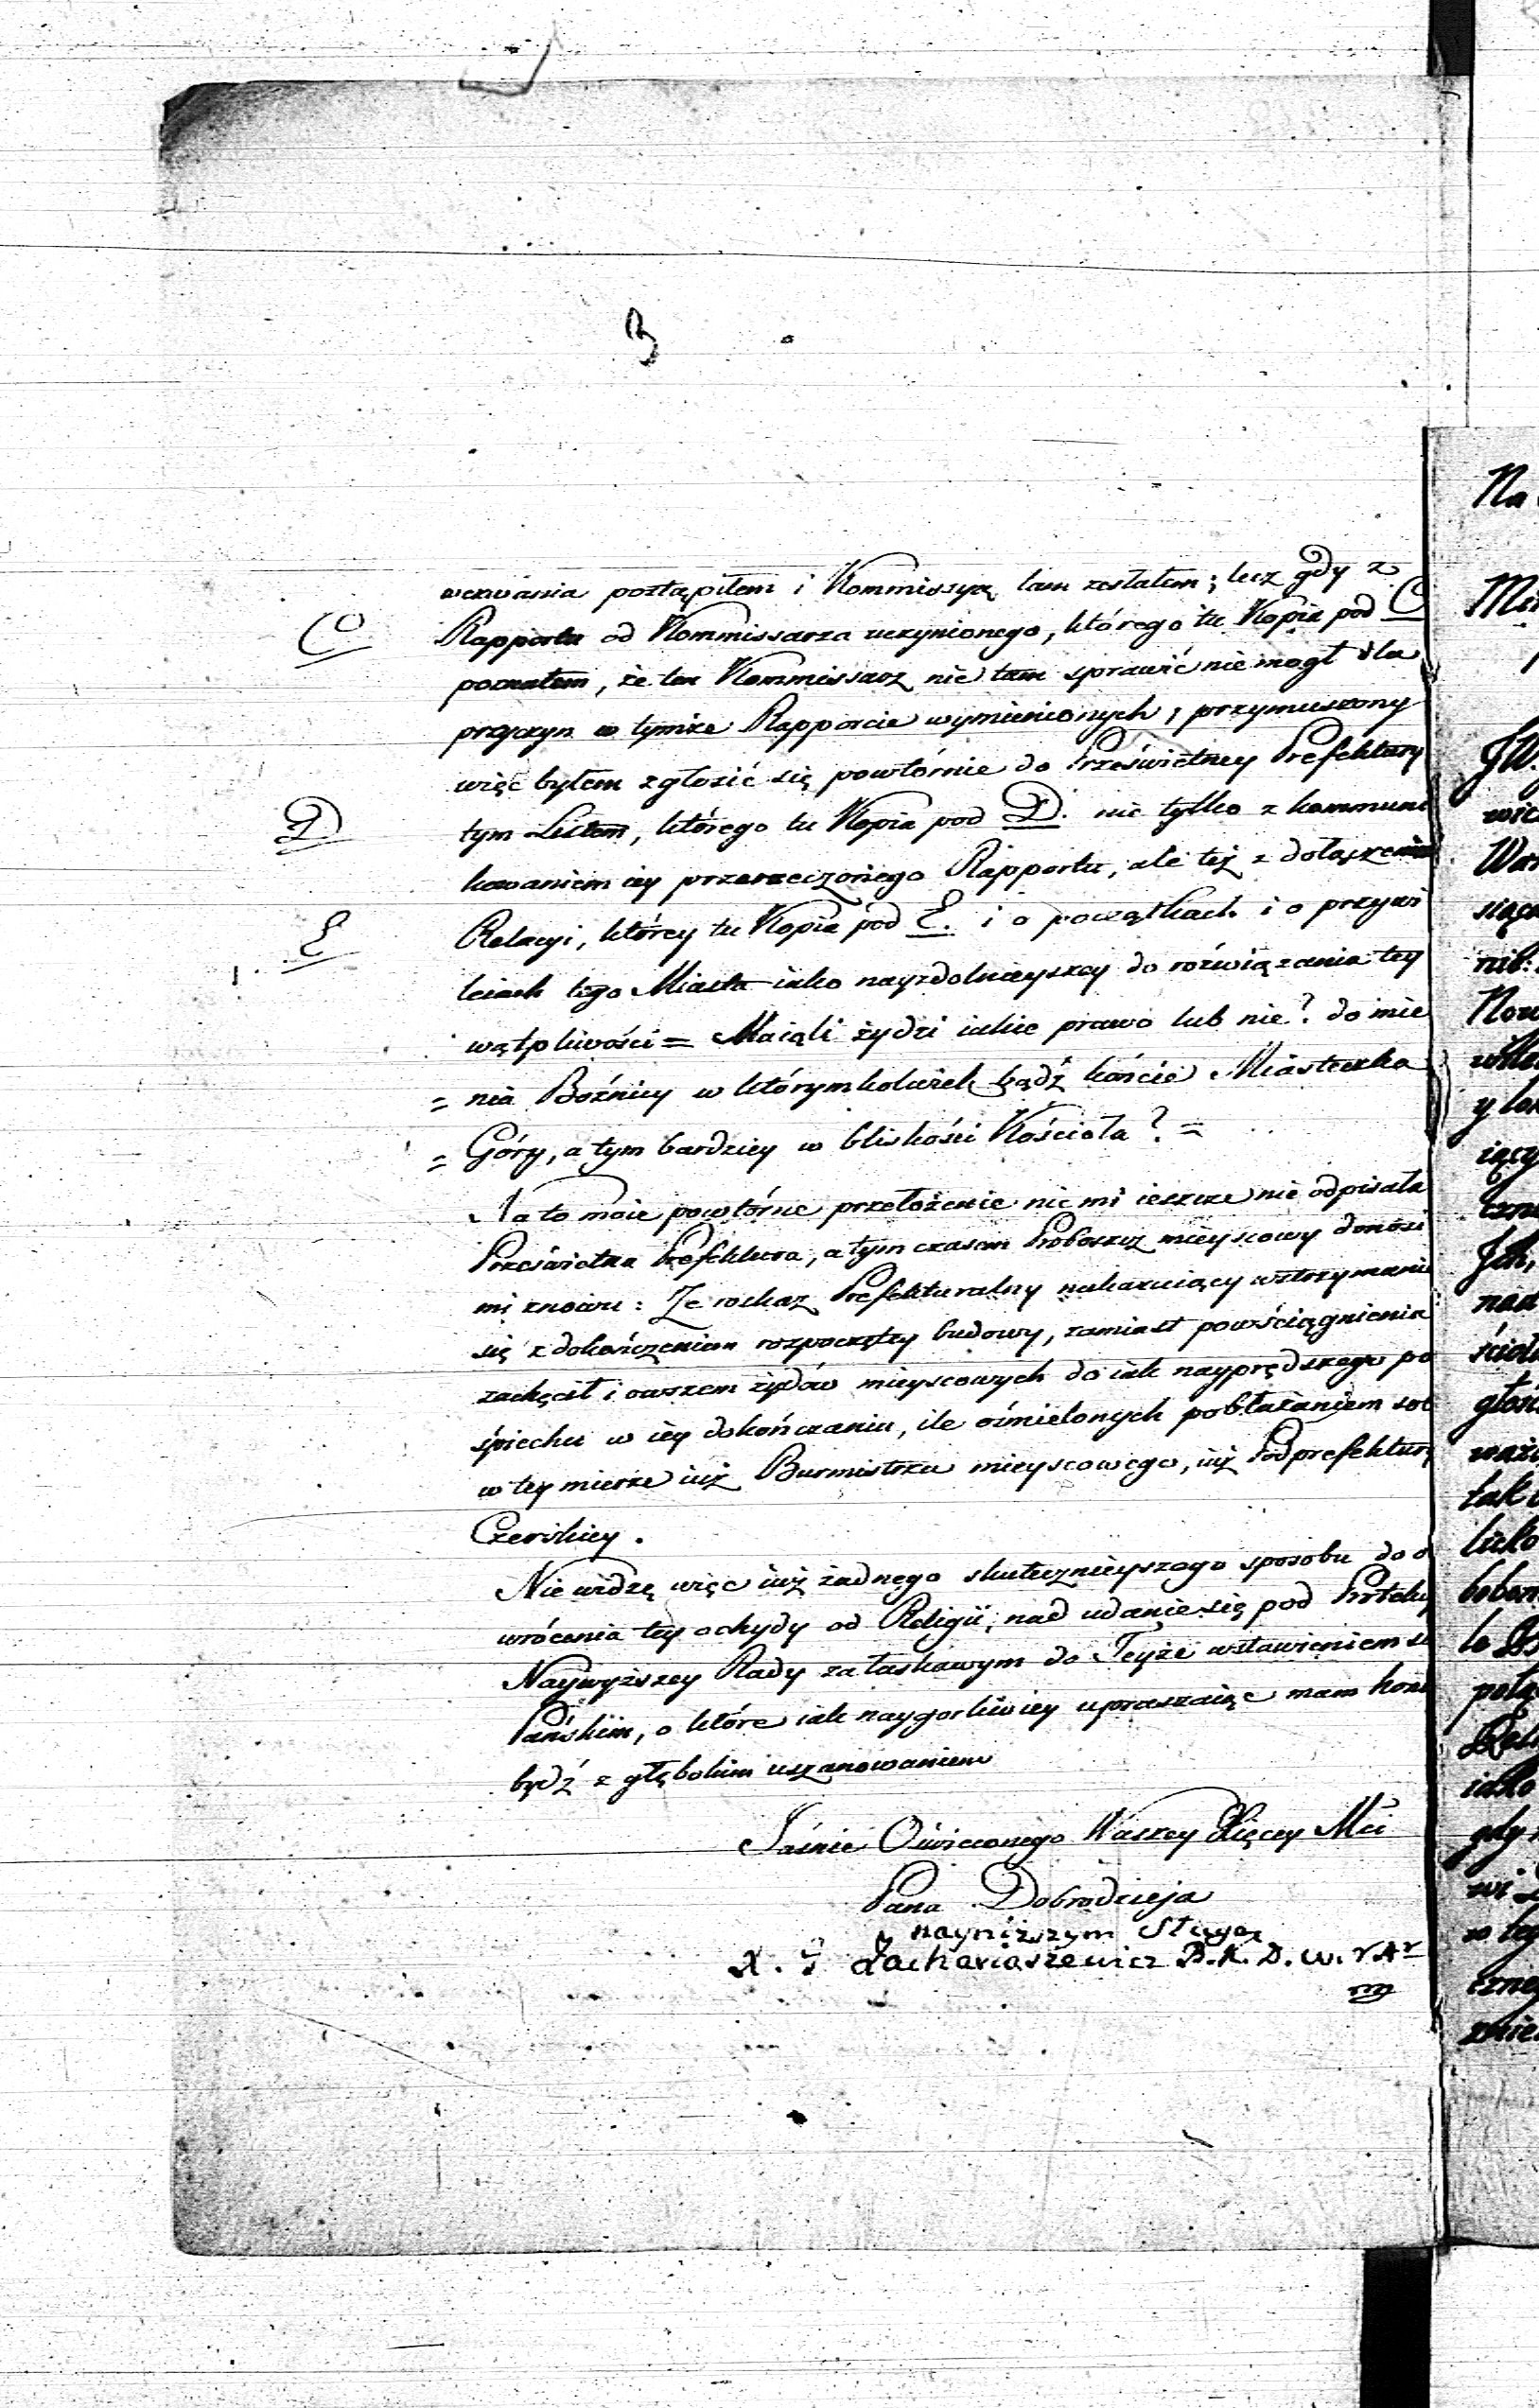 B
wezwania postąpiłem i Kommissyą tam zesłałem; lecz gdy z
C Rapportu od Kommissarza uczynionego, którego tu Kopia pod C
poznałem, że ten Kommissarz nic tam sprawić nie mogł dla
przyczyn w tymże Rapporcie wymienionych, przymuszony
więc byłem zgłosić się powtórnie do Prześwietney Prefektury
D tym Listem, którego tu Kopia pod D. nie tylko z kommuni
kowaniem iey przerzeczonego Rapportu, ale też z dołączeniem
E Relacyi, którey tu Kopia pod E. i o początkach i o przywi
leiach tego Miasta iako nayzdolnieyszey do rozwiązania tey
wątpliwości = Maiąli żydzi iakie prawo lub nie? do mie
= nia Bożnicy w którymkolwiek bądź końcie Miasteczka
= Góry, a tym bardziey w bliskości Kościoła? =
Na to moie powtórne przełożenie nic mi ieszcze nie odpisała
Prześwietna Prefektura, a tym czasem Proboszcz mieyscowy donosi
mi znowu: Ze rozkaz Prefekturalny nakazuiący wstrzymanie
się z dokończeniem rozpoczętey budowy, zamiast powściągnienia
zachęcił i owszem żydów mieyscowych do iak nayprędszego po
śpiechu w iey dokończeniu, ile ośmielonych pobłażaniem sob
w tey mierze iuż Burmistrza mieyscowego, iuż Podprefektury
Czerskiey.
Nie widzę więc iuż żadnego skutecznieyszego sposobu do o
wrócenia tey ochydy od Religii, nad udanie się pod Protekcy
Naywyższey Rady za łaskawym do Teyże wstawieniem si
Pańskim, o które iak naygorliwiey upraszaiąc mam hon
bydź z głębokim uszanowaniem
Jaśnie Oświeconego Waszey Xięcey Mci
Pana Dobrodzieja
nayniższym Sługą
X. Zachariaszewicz B. K. D. W.
Na
JW.
War
siąc
nib:
Now
y
iący
Jch,
nad
tak
gdy
w tey